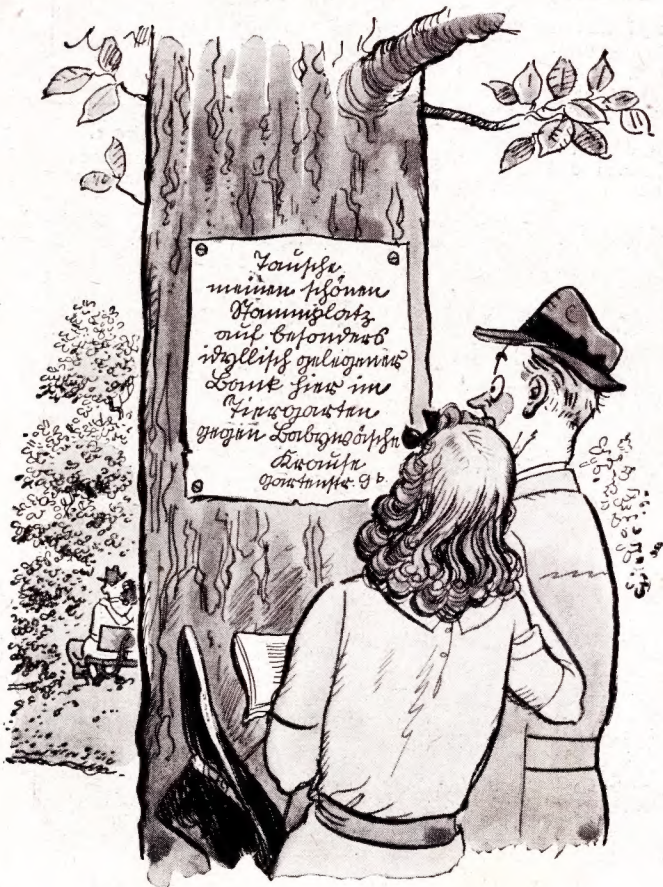 Tausche
meinen schönen
Stammplatz
auf besonders
idyllisch gelegener
Bank hier im
Tiergarten
gegen Babywäsche
Krause
Gartenstr. 9b.